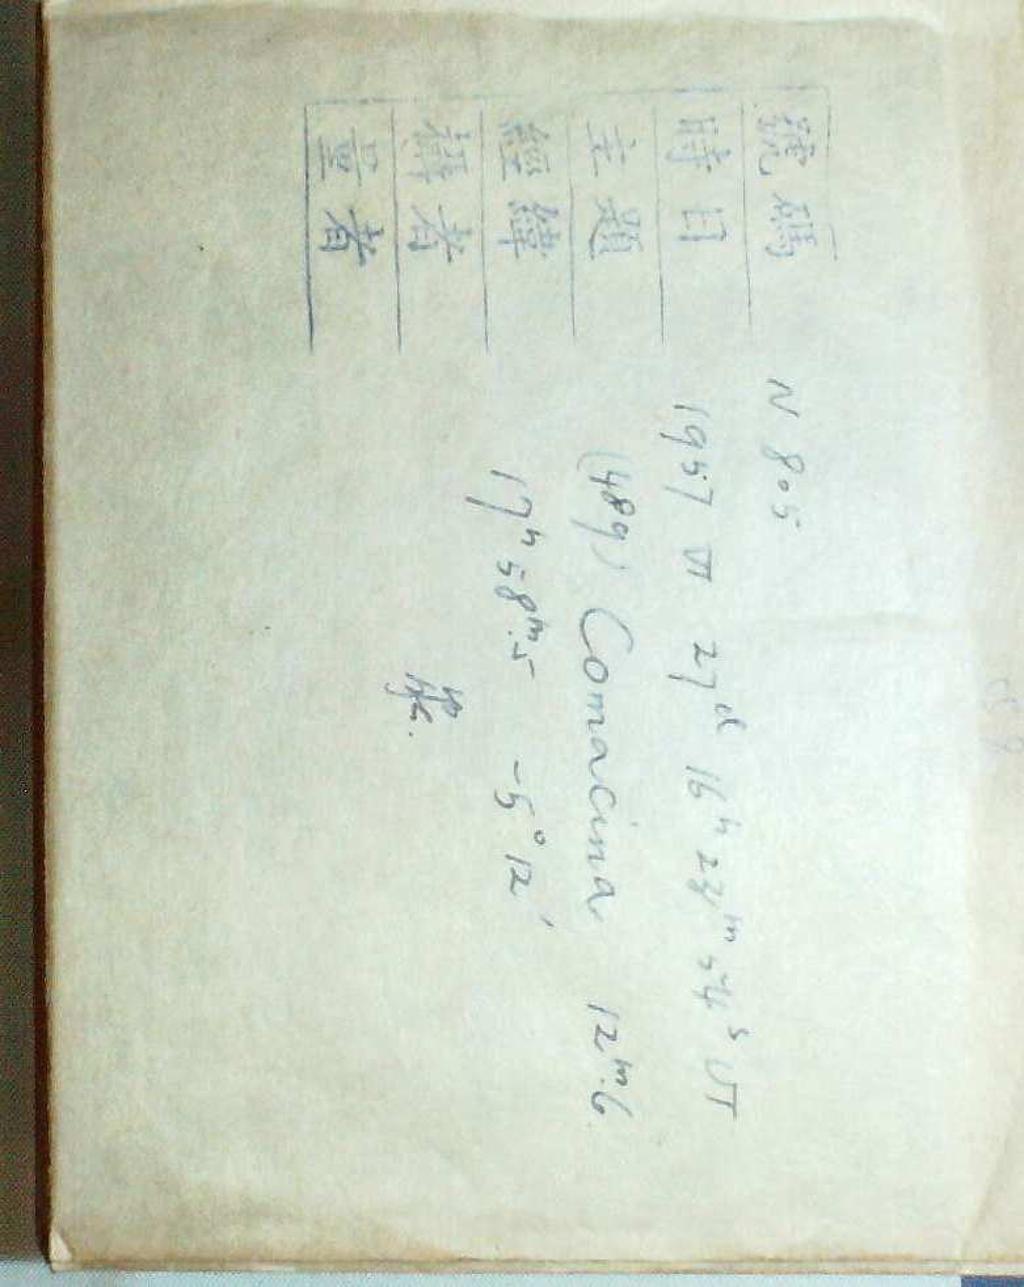 號碼 N 805
時日 1957 VI 27ᵈ 16ʰ 23ᵐ 54ˢ UT
主題 (489) Comacina 12ᵐ.6
經緯 17ʰ 58ᵐ.5 -5° 12′
攝者
量者